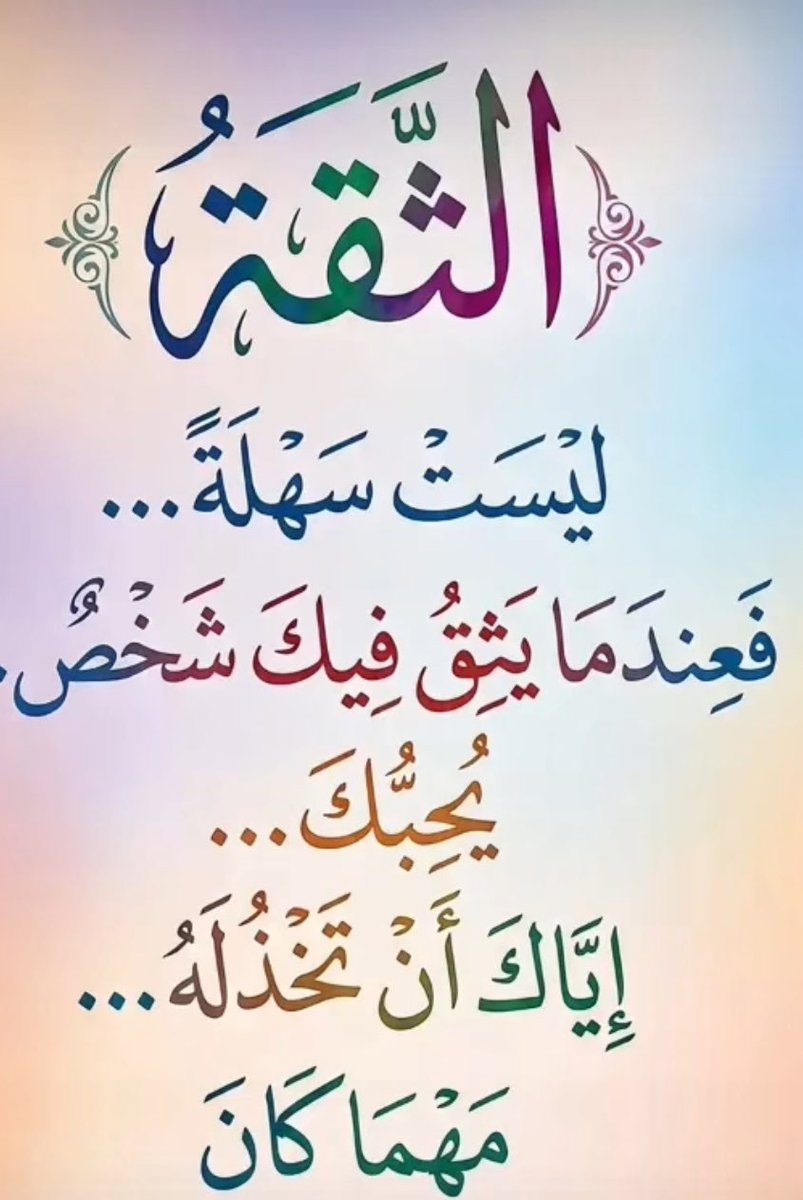 الثَّقَةُ
لَيْسَتْ سَهْلَةً...
فَعِندَمَا يَثِقُ فِيكَ شَخْصٌ.
يُحِبُّكَ...
إِيَّاكَ أَنْ تَخْذُلَهُ...
مَهْمَا كَانَ